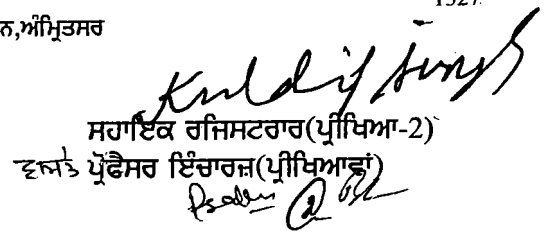 1527
ਨ,ਅੰਮ੍ਰਿਤਸਰ
Kuldip Singh
ਸਹਾਇਕ ਰਜਿਸਟਰਾਰ(ਪ੍ਰੀਖਿਆ-2)
ਵਾਸਤੇ ਪ੍ਰੋਫੈਸਰ ਇੰਚਾਰਜ਼(ਪ੍ਰੀਖਿਆਵਾਂ)